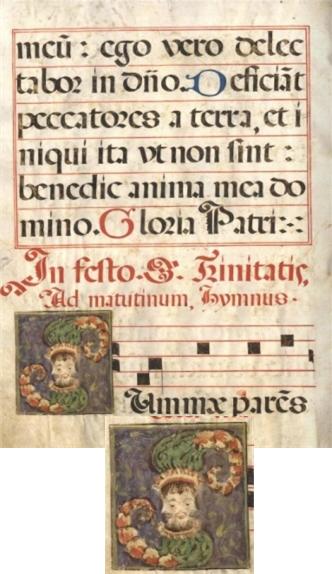 meū : ego vero delec
tabor in dño. Deficiāt
peccatores a terra, et i
niqui ita vt non sint :
benedic anima mea do
mino. Gloria Patri:-:
In festo. S. Trinitatis,
Ad matutinum, Hymnus.
SUmmæ parēs